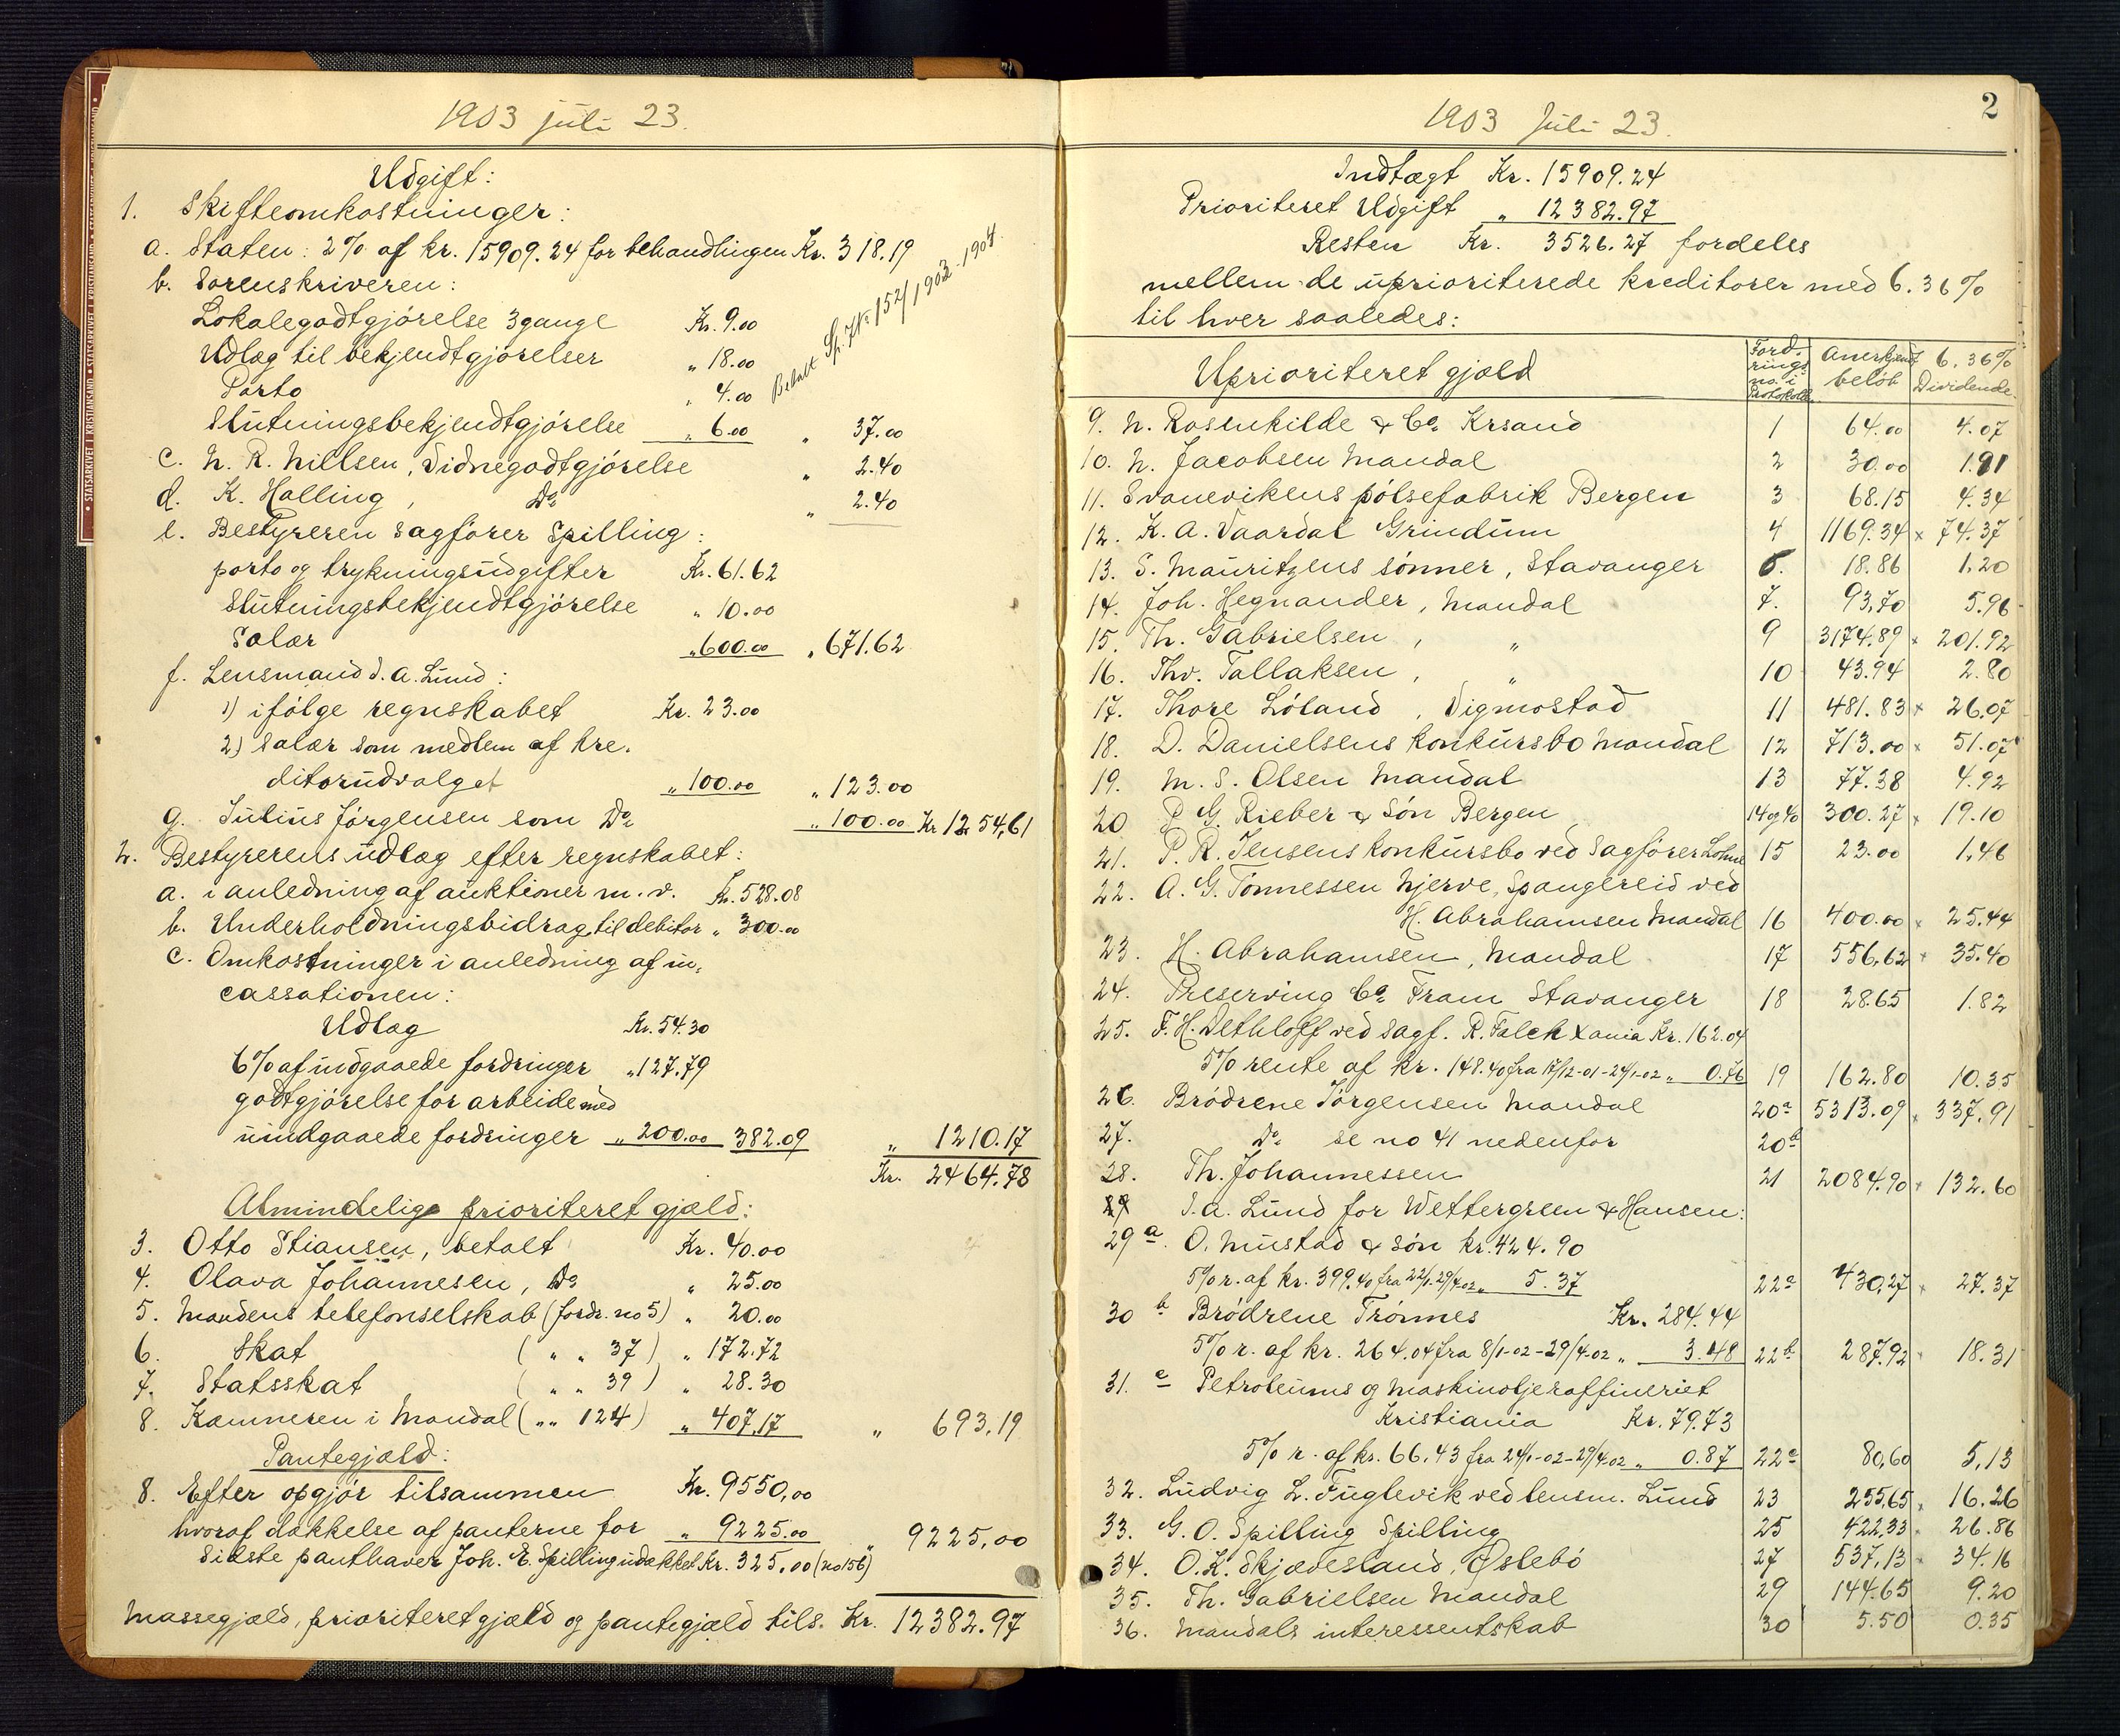 1903 juli 23.
Udgift:
1. Skifteomkostninger:
a. Staten: 2% af kr. 15909.24 for behandlingen Kr. 318.19
b. Sorenskriveren:
Lokalegodtgjörelse 3 gange Kr. 9.00
Udlæg til bekjendtgjörelser " 18.00
Porto " 4.00
Slutningsbekjendtgjörelse " 6.00 " 37.00
Betalt Sp. 152/1903-1904.
c. N. R. Nillsen, Vidnegodtgjörelse " 2.40
d. K. Halling, Do " 2.40
e. Bestyreren Sagförer Spilling:
porto og trykningsudgifter Kr. 61.62
Slutningsbekjendtgjörelse " 10.00
Salær " 600.00 " 671.62
f. Lensmand J. A. Lund:
1) ifölge regnskabet Kr. 23.00
2) Salær som medlem af kre-
ditorudvalget " 100.00 " 123.00
g. Julius Jörgensen som Do " 100.00 Kr 1254,61
2. Bestyrerens udlæg efter regnskabet:
a. i anledning af auktioner m. v. Kr. 528.08
b. Underholdningsbidrag til debitor " 300.00
c. Omkostninger i anledning af in-
cassationen:
Udlæg Kr. 54.30
6% af indgaaede fordringer " 127.79
godtgjörelse for arbeide med
uindgaaede fordringer " 200.00 382.09 " 1210.17
Kr. 2464.78
Almindelig prioriteret gjæld:
3. Otto Stiansen, betalt Kr. 40.00
4. Olava Johannesen, Do " 25.00
5. Mandens telefonselskab (fordr. no 5) " 20.00
6. Skat ( " " 37) " 172.72
7. Statsskat ( " " 39) " 28.30
8. Kæmneren i Mandal ( " " 124) " 407.17 " 693.19
Pantegjæld:
8. Efter opgjör tilsammen Kr. 9550,00
hvoraf dækkelse af panterne for " 9225.00 " 9225,00
Sidste panthaver Joh. E. Spilling udækket Kr. 325,00 (no 156)
Massegjæld, prioriteret gjæld og pantegjæld tils. Kr. 12382.97
2
1903 Juli 23.
Indtægt Kr. 15909.24
Prioriteret Udgift " 12382.97
Resten Kr. 3526.27 fordeles
mellem de uprioriterede kreditorer med 6.36%
til hver saaledes:
Uprioriteret gjæld | Ford-rings no. i Protokollen | Anerkjendt belöb | 6.36% Dividende.
9. N. Rosenkilde & Co. Krsand 1 64.00 4.07
10. N. Jacobsen Mandal 2 30.00 1.91
11. Svanevikens pölsefabrik Bergen 3 68.15 4.34
12. K. A. Vaardal Grindum 4 1169.34 × 74.37
13. S. Mauritzens sönner, Stavanger 6. 18.86 1.20
14. Joh. Hegnander, Mandal 7. 93,70 5.96
15. Th. Gabrielsen, " 9 3174.89 × 201.92
16. Thv. Tallaksen, " 10 43.94 2.80
17. Thore Löland, Vigmostad 11 481.83 × 26.07
18. D. Danielsens konkursbo Mandal 12 713.00 × 51.07
19. M. S. Olsen Mandal 13 77.38 4.92
20 P G. Rieber & Sön Bergen 14 og 40 300.27 × 19.10
21. P. R. Jensens konkursbo ved Sagförer Lohne 15 23.00 1,46
22. A. G. Tönnessen Njerve, Spangereid ved
H. Abrahamsen Mandal 16 400.00 × 25.44
23. H. Abrahamsen, Mandal 17 556,62 × 35.40
24. Preserving Co. Fram Stavanger 18 28.65 1.82
25. F. H. Dethloff ved Sagf. R. Falck Xania Kr. 162.04
5% rente af kr. 148.40 fra 17/12-01-24/1-02 " 0.76 19 162.80 10.35
26. Brödrene Jörgensen Mandal 20a 5313.09 × 337.91
27. Do se no 41 nedenfor 20b
28. Th. Johannessen 21 2084.90 × 132.60
29 J. A. Lund for Wettergreen & Hansen:
29 a. O. Mustad & Sön kr. 424.90
5% r. af kr. 399.40 fra 22/1-29/4-02 " 5.37 22a 430,27 × 27.37
30 b Brödrene Trönnes Kr. 284.44
5% r. af kr. 264.04 fra 8/1-02-29/4-02 " 3.48 22b 287.92 × 18.31
31. c Petroleums og Maskinoljeraffineriet
Kristiania Kr. 79.73
5% r. af kr. 66.43 fra 24/1-02-29/4-02 " 0.87 22c 80,60 5,13
32. Ludvig L. Fuglevik ved lensm. Lund 23 255,65 × 16.26
33. G. O. Spilling Spilling 25 422,33 × 26.86
34. O. K. Skjævesland, Øslebö 27 537,13 × 34.16
35. Th. Gabrielsen Mandal 29 144.65 9.20
36. Mandals interessentskab 30 5.50 0.35
STATSARKIVET I KRISTIANSAND